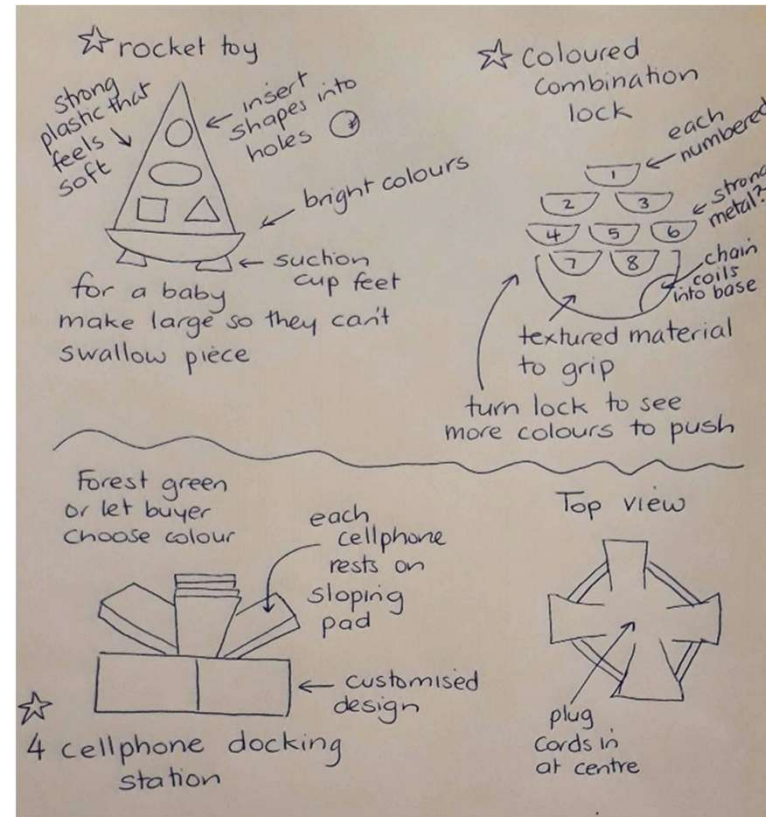 ☆ rocket toy
strong
plastic that
feels
soft
insert
shapes into
holes
bright colours
suction
cup feet
for a baby
make large so they can't
swallow piece
☆ coloured
combination
lock
each
numbered
1
2 3
4 5 6
7 8
strong
metal?
chain
coils
into base
textured material
to grip
turn lock to see
more colours to push
Forest green
or let buyer
choose colour
each
cellphone
rests on
sloping
pad
customised
design
☆
4 cellphone docking
station
Top view
plug
cords in
at centre